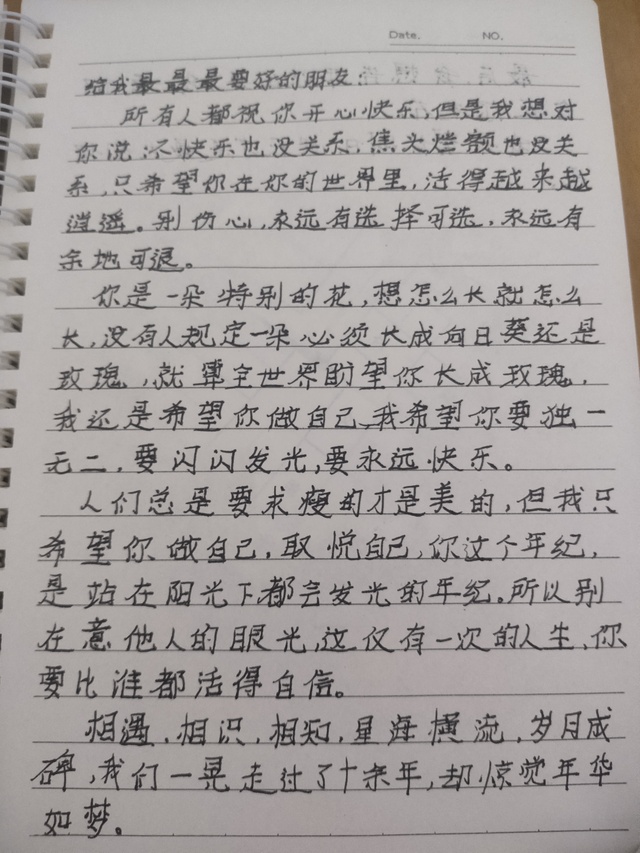 Date.          NO.
给我最最最要好的朋友
所有人都祝你开心快乐,但是我想对
你说:不快乐也没关系,焦头烂额也没关
系,只希望你在你的世界里,活得越来越
逍遥。别伤心,永远有选择可选,永远有
余地可退。
你是一朵特别的花,想怎么长就怎么
长,没有人规定一朵必须长成向日葵还是
玫瑰,就算全世界盼望你长成玫瑰,
我还是希望你做自己、我希望你要独一
无二,要闪闪发光,要永远快乐。
人们总是要求瘦的才是美的,但我只
希望你做自己,取悦自己,你这个年纪,
是站在阳光下,都会发光的年纪。所以别
在意他人的眼光,这仅有一次的人生,你
要比谁都活得自信。
相遇,相识,相知,星海横流,岁月成
碑,我们一晃走过了十余年,却惊觉年华
如梦。